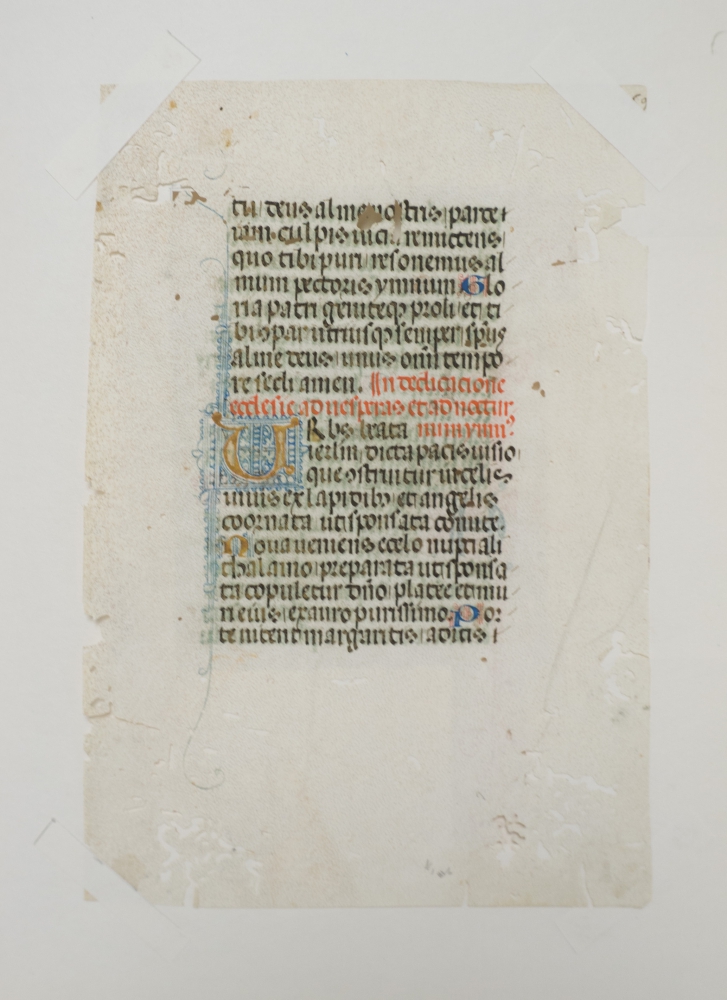 tu deus alme nostris parce i
iam culpis vicia remittens
quo tibi puri resonemus al
mum pectoris ymnum Glo
ria patri geniteq proli et ti
bi gpar utriusq semper spūs
alme deus unus omi tempo
re secli amen. In dedicacione
ecclesie ad uesperas et ad noctur
Urbs beata num ymn?
ierlm dicta pacis uisio
que gstruitur in celis
uiuis ex lapidibȝ et angelis
coornata ut sponsata comite.
Noua ueniens e celo nuptiali
thalamo preparata ut sponsa
ta copuletur dño platee et mu
ri eius ex auro purissimo. Por
te nitent margaritis aditis